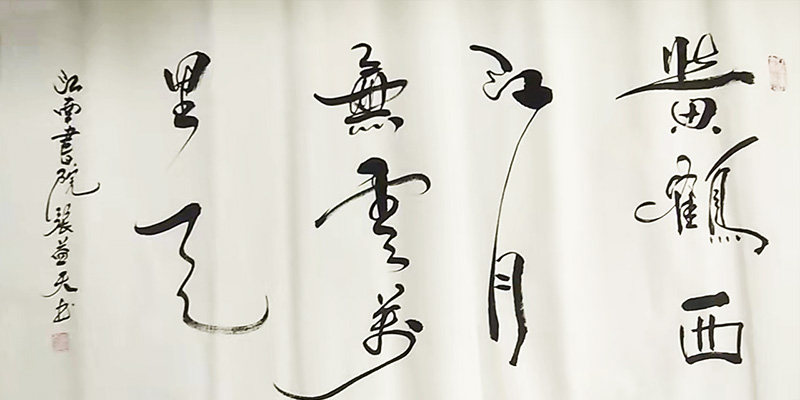 黄鶴西
江月
無雲萬
里天
江雲書院張益天书